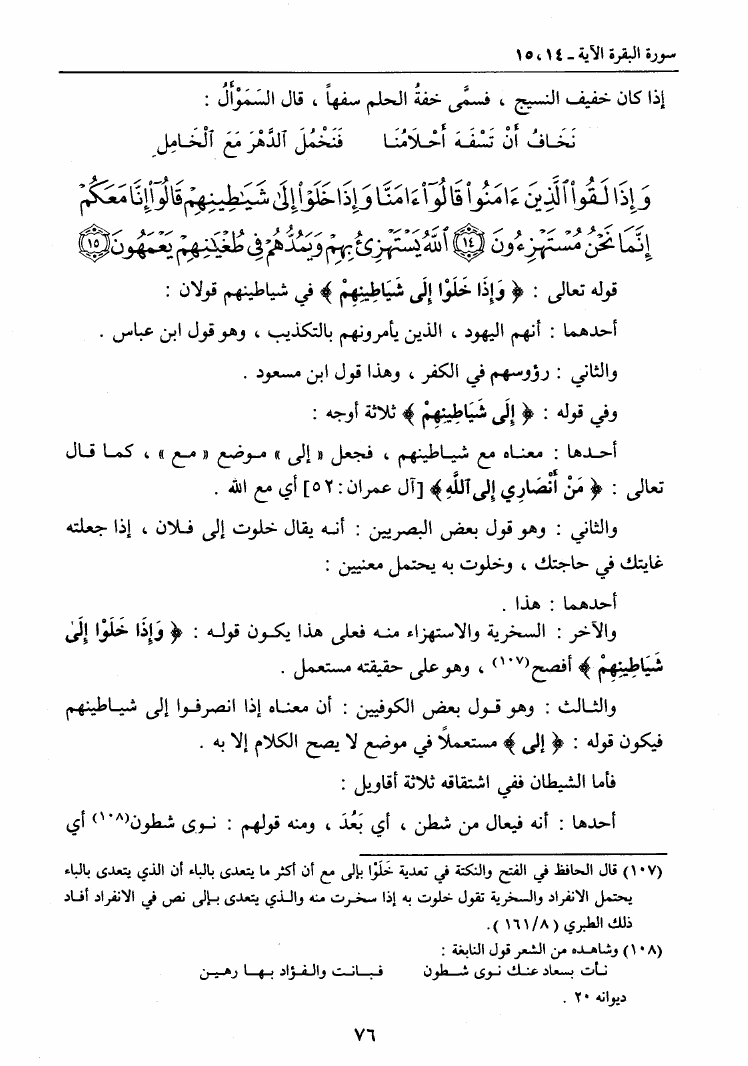 سورة البقرة الآية ـ ١٤، ١٥
إذا كان خفيف النسيج ، فسمَّى خفةُ الحلم سفهاً ، قال السَمَوْأَلُ :
نَخَافُ أَنْ تَسْفَهَ أَحْلَامُنَا فَنَخْمُلَ ٱلدَّهْرَ مَعَ ٱلْخَامِلِ
وَإِذَا لَقُوا۟ ٱلَّذِينَ ءَامَنُوا۟ قَالُوٓا۟ ءَامَنَّا وَإِذَا خَلَوْا۟ إِلَىٰ شَيَـٰطِينِهِمْ قَالُوٓا۟ إِنَّا مَعَكُمْ
إِنَّمَا نَحْنُ مُسْتَهْزِءُونَ ﴿١٤﴾ ٱللَّهُ يَسْتَهْزِئُ بِهِمْ وَيَمُدُّهُمْ فِى طُغْيَـٰنِهِمْ يَعْمَهُونَ ﴿١٥﴾
قوله تعالى : ﴿ وَإِذَا خَلَوْا إِلَى شَيَاطِينِهِمْ ﴾ في شياطينهم قولان :
أحدهما : أنهم اليهود ، الذين يأمرونهم بالتكذيب ، وهو قول ابن عباس .
والثاني : رؤوسهم في الكفر ، وهذا قول ابن مسعود .
وفي قوله : ﴿ إِلَى شَيَاطِينِهِمْ ﴾ ثلاثة أوجه :
أحدها : معناه مع شياطينهم ، فجعل « إلى » موضع « مع » ، كما قال
تعالى : ﴿ مَنْ أَنْصَارِي إِلى ٱللَّهِ﴾ [آل عمران: ٥٢] أي مع الله .
والثاني : وهو قول بعض البصريين : أنه يقال خلوت إلى فلان ، إذا جعلته
غايتك في حاجتك ، وخلوت به يحتمل معنيين :
أحدهما : هذا .
والآخر : السخرية والاستهزاء منه فعلى هذا يكون قوله : ﴿ وَإِذَا خَلَوْا إِلَىٰ
شَيَاطِينِهِمْ ﴾ أفصح(١٠٧) ، وهو على حقيقته مستعمل .
والثالث : وهو قول بعض الكوفيين : أن معناه إذا انصرفوا إلى شياطينهم
فيكون قوله : ﴿ إلى ﴾ مستعملاً في موضع لا يصح الكلام إلا به .
فأما الشيطان ففي اشتقاقه ثلاثة أقاويل :
أحدها : أنه فيعال من شطن ، أي بَعُدَ ، ومنه قولهم : نوى شطون(١٠٨) أي
(١٠٧) قال الحافظ في الفتح والنكتة في تعدية خَلَوْا بإلى مع أن أكثر ما يتعدى بالباء أن الذي يتعدى بالباء
يحتمل الانفراد والسخرية تقول خلوت به إذا سخرت منه والذي يتعدى بإلى نص في الانفراد أفاد
ذلك الطبري (١٦١/٨ ).
(١٠٨) وشاهده من الشعر قول النابغة :
نأت بسعاد عنك نوى شطون فبانت والفؤاد بها رهين
ديوانه ٢٠ .
٧٦